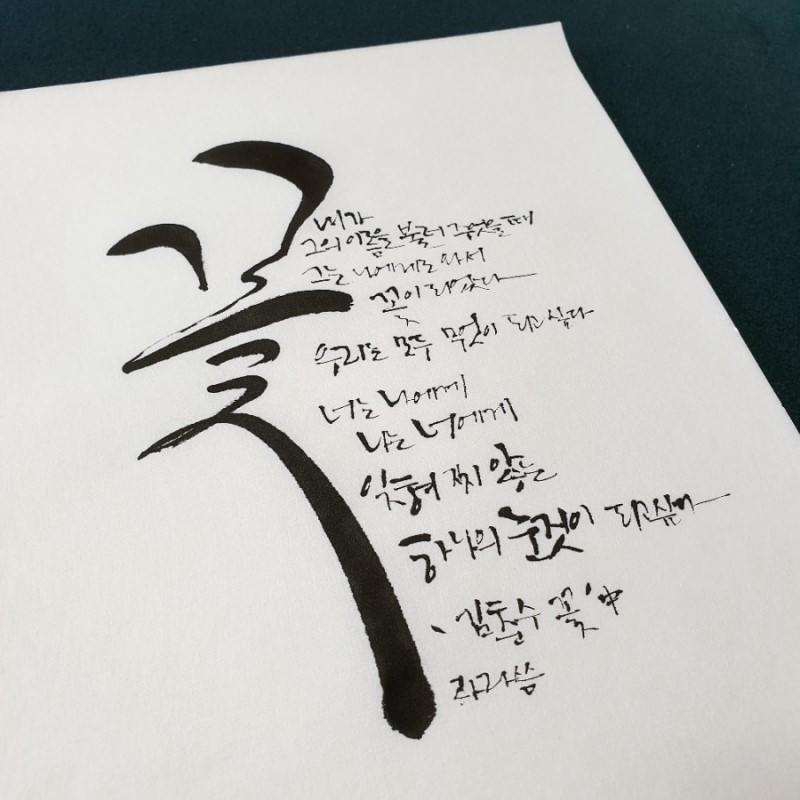 꽃
내가
그의 이름을 불러 주었을 때
그는 나에게로 와서
꽃이 되었다
우리는 모두 무엇이 되고 싶다
너는 나에게
나는 너에게
잊혀지지 않는
하나의 눈짓이 되고 싶다
- 김춘수 꽃' 中